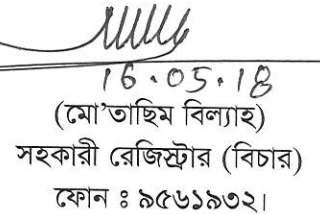 16.05.18
(মো'তাছিম বিল্যাহ)
সহকারী রেজিস্ট্রার (বিচার)
ফোন ঃ ৯৫৬১৯৩২।